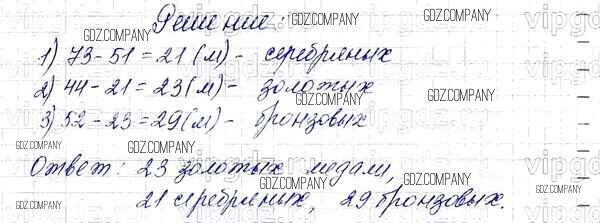 Решение:
1) 73 - 51 = 21 (м) - серебряных
2) 44 - 21 = 23 (м) - золотых
3) 52 - 23 = 29 (м) - бронзовых
Ответ: 23 золотых медали,
21 серебряных, 29 бронзовых.
GDZ.COMPANY
GDZ.COMPANY
GDZ.COMPANY
GDZ.COMPANY
GDZ.COMPANY
GDZ.COMPANY
GDZ.COMPANY
GDZ.COMPANY
GDZ.COMPANY
GDZ.COMPANY